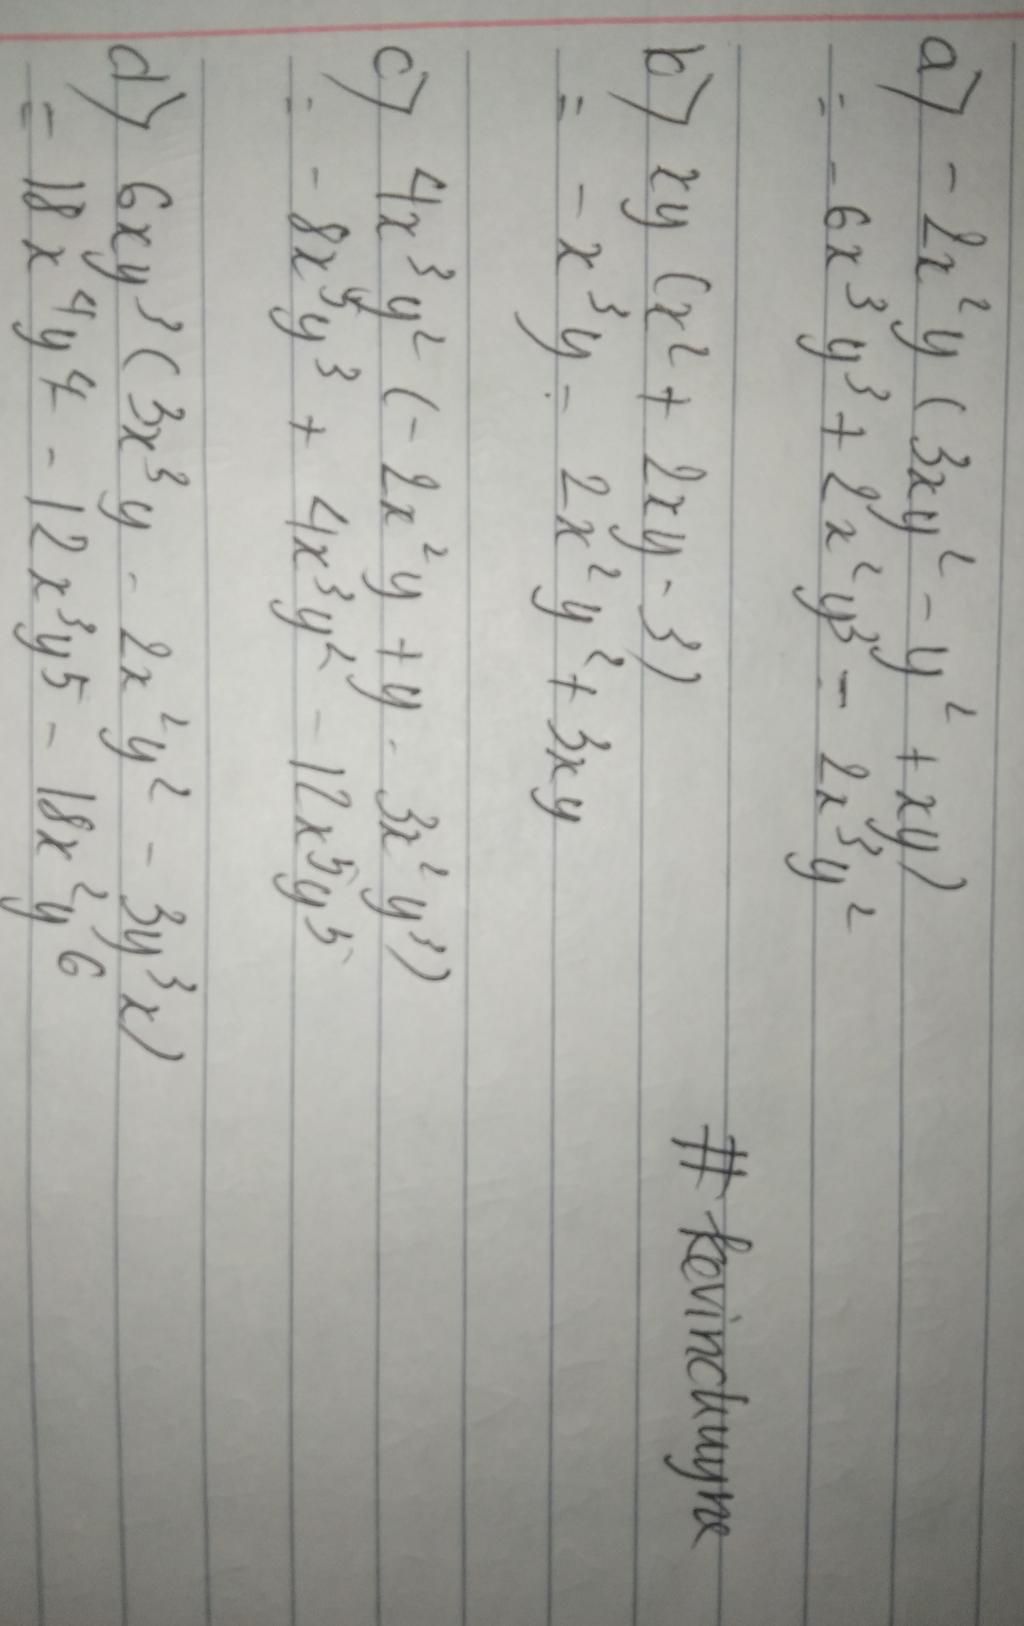 a) - 2x²y (3xy² - y² + xy)
= - 6x³y³ + 2x²y³ - 2x³y²
b) xy (x² + 2xy - 3)
= - x³y - 2x²y² + 3xy
# kevinchuyne
c) 4x³y² (- 2x²y + y - 3x²y³)
= - 8x⁵y³ + 4x³y² - 12x⁵y⁵
d) 6xy³ (3x³y - 2x²y² - 3y³x)
= 18x⁴y⁴ - 12x³y⁵ - 18x²y⁶